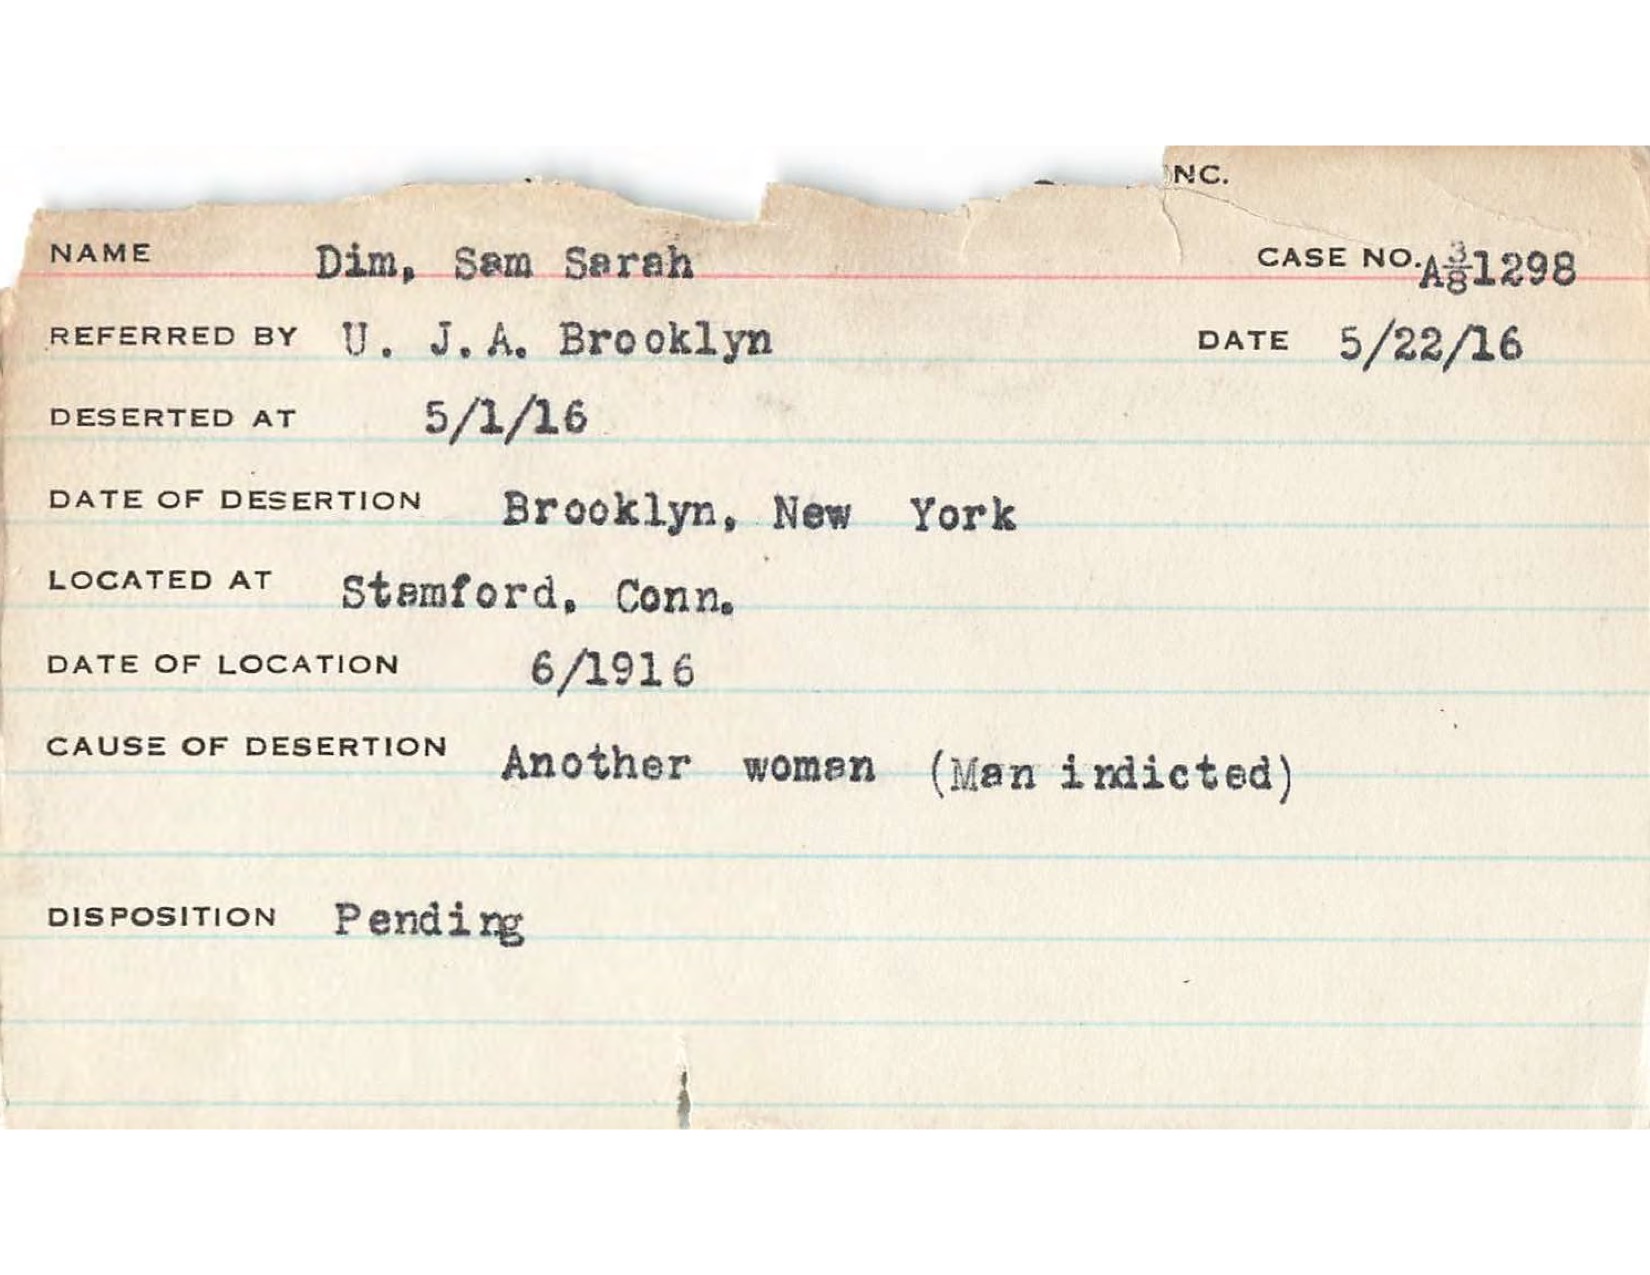 INC.
NAME Dim, Sam Sarah CASE NO. A⅜1298
REFERRED BY U. J.A. Brooklyn DATE 5/22/16
DESERTED AT 5/1/16
DATE OF DESERTION Brooklyn, New York
LOCATED AT Stamford, Conn.
DATE OF LOCATION 6/1916
CAUSE OF DESERTION Another woman (Man indicted)
DISPOSITION Pending